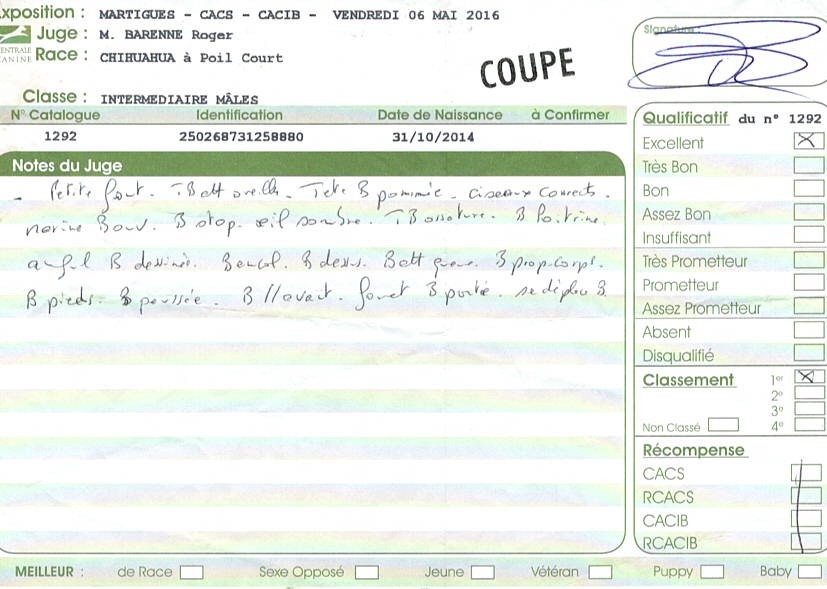 xposition : MARTIGUES - CACS - CACIB - VENDREDI 06 MAI 2016
Juge : M. BARENNE Roger
CENTRALE
CANINE
Race : CHIHUAHUA à Poil Court
COUPE
Signature :
Classe : INTERMEDIAIRE MÂLES
N° Catalogue Identification Date de Naissance à Confirmer
1292 250268731258880 31/10/2014
Qualificatif du n° 1292
Excellent
Très Bon
Bon
Assez Bon
Insuffisant
Très Prometteur
Prometteur
Assez Prometteur
Absent
Disqualifié
Classement 1er
2e
3e
Non Classé 4e
Récompense
CACS
RCACS
CACIB
RCACIB
Notes du Juge
- Petite . TB att oreille. Tete B pommée. ciseaux corrects.
narine B stop. œil sombre. TB ossature. B Poitrine.
B dessinée. B dessus. B att queue. B prop. corps.
B pieds. B poussée. B // avant. fouet B porté. se déplace B.
MEILLEUR : de Race Sexe Opposé Jeune Vétéran Puppy Baby